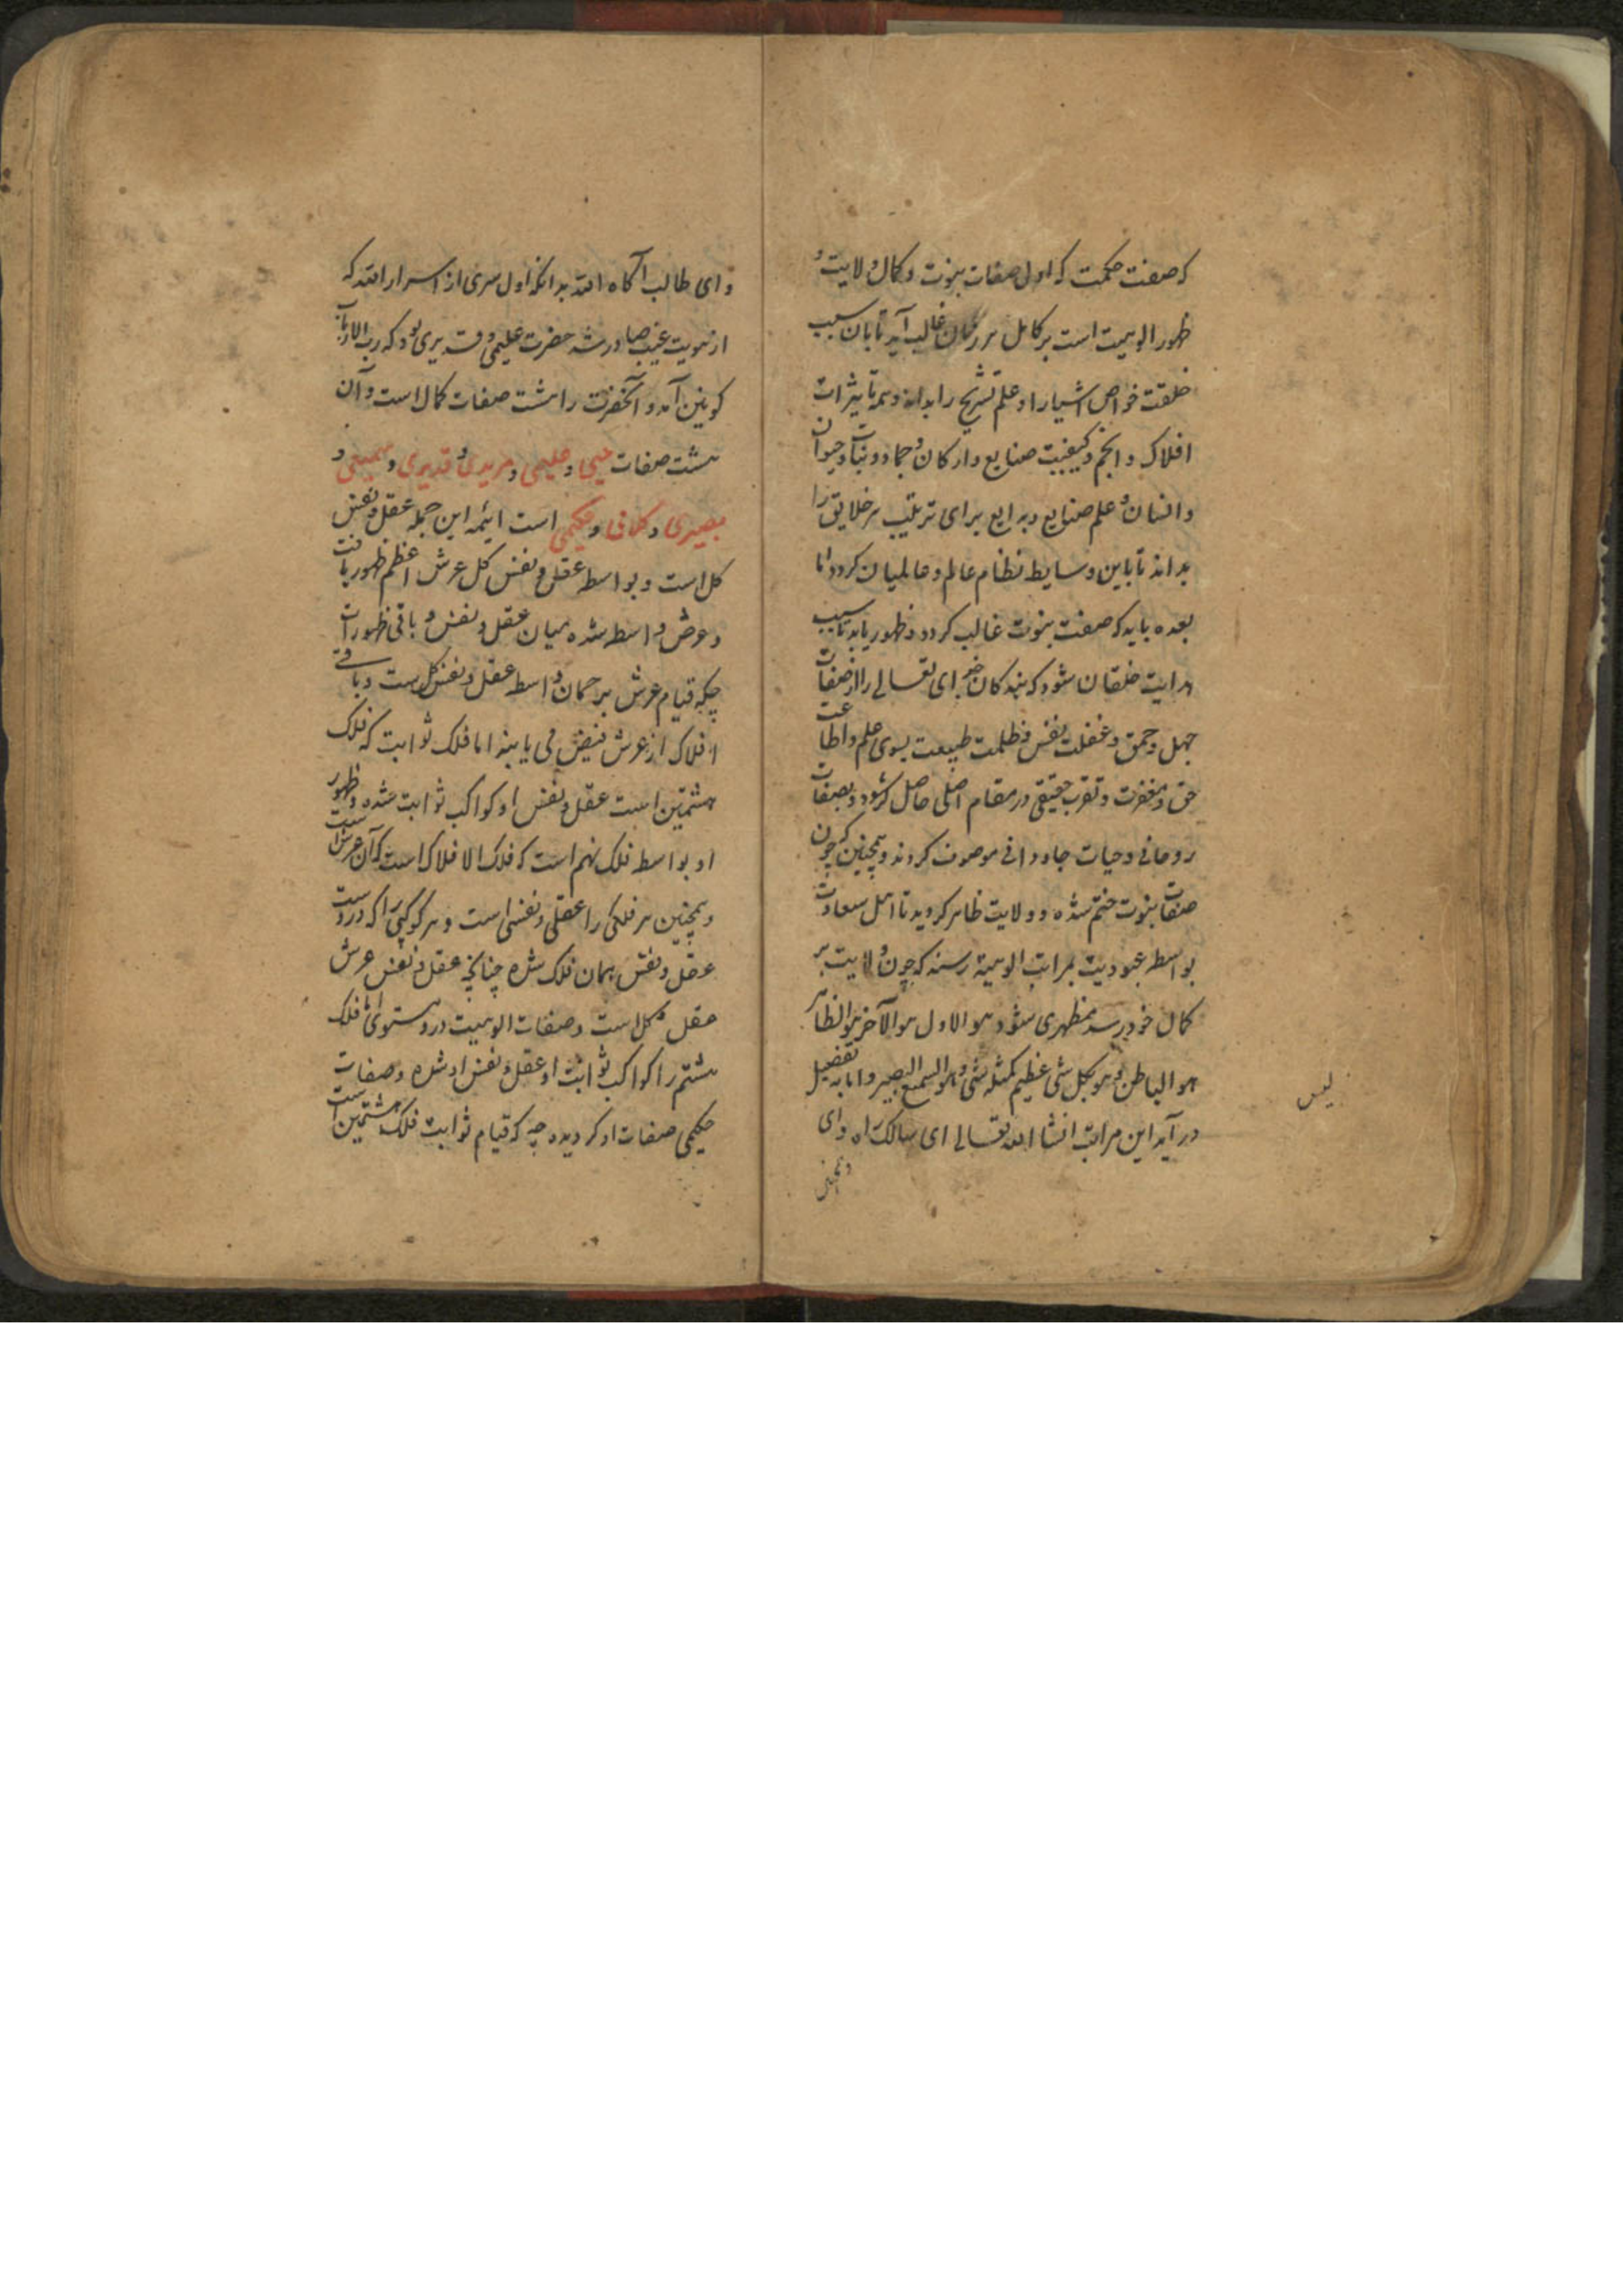 که صفت حکمت که اول صفات نبوت و کمال ولایت و
ظهور الوهیت است بر کامل هر زمان غالب آید تا بان سبب
خلقت خواص اشیا را و علم تشریح را بداند و همه تاثیرات
افلاک و انجم و کیفیت صنایع و ارکان و جماد و نبات و حیوان
و انسان و علم صنایع و بدایع برای ترتیب هر خلایق را
بداند تا باین وسایط نظام عالم و عالمیان کردد اما
بعده باید که صفت نبوت غالب کردد و ظهور یابد تا سبب
هدایت خلقان شود که بندکان خدای تعالی را از صفات
جهل و حمق و غفلت نفس و ظلمت طبیعت بسوی علم و اطاعت
حق و مغفرت و تقرب حقیقی در مقام اصلی حاصل شود و بصفات
روحانی و حیات جاودانی موصوف کردند و همچنین که چون
صفات نبوت ختم شده و ولایت ظاهر کردید تا اهل سعادت
بواسطه عبودیت بمراتب الوهیة رسند که چون ولایت بر
کمال خود رسد مظهری شود هو الاول هو الآخر هو الظاهر
هو الباطن و هو بکل شی عظیم کمثله شی و هو السمیع البصیر و اما به تفصیل
لیس
در آید این مراتب انشا الله تعالی ای سالک راه و ای
و ای طالب آکاه الله بدانکه اول سری از اسرار الله که
از هویت غیب صادر شد حضرت علیمی و قدیری بود که رب الارباب
کونین آمد و آنحضرت را هشت صفات کمال است و آن
هشت صفات حیی و علیمی و مریدی و قدیری و سمیعی و
بصیری و کلامی و حکیمی است ائمه این جمله عقل و نفس
کل است و بواسطه عقل و نفس کل عرش اعظم ظهور یافت
و عرش واسطه شده میان عقل و نفس و باقی ظهورات
چکه قیام عرش بر حمان واسطه عقل و نفس کل ست و باقی
افلاک از عرش فیض می یابند اما فلک ثوابت که فلک
هشتمین است عقل و نفس او کواکب ثوابت شده و ظهور
او بواسطه فلک نهم است که فلک الافلاک است که آن عرش است
و همچنین هر فلکی را عقلی و نفسی است و هر کوکبی را که دروست
عقل و نفس همان فلک شده چنانچه عقل و نفس عرش
عقل کل است و صفات الوهیت درو مستوی اما فلک
هشتم را کواکب ثوابت او عقل و نفس او شده و صفات
حکیمی صفات او کردیده چه که قیام ثوابت فلک هشتمین است